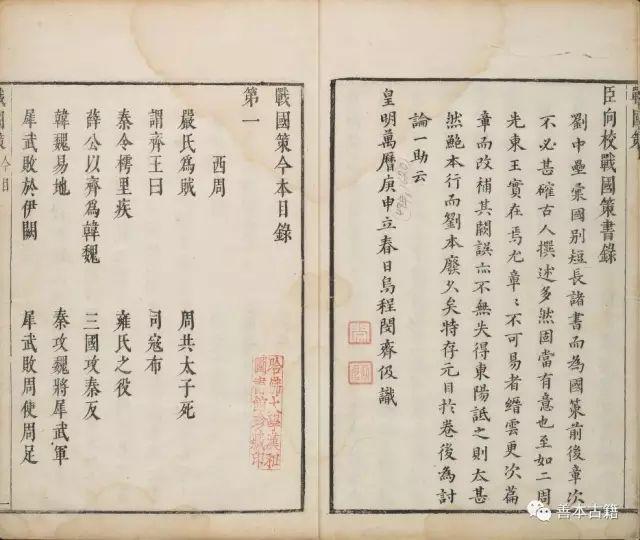 戰國策
臣向校戰國策書錄
劉中壘彙國别短長諸書而為國策前後章次
不必甚確古人撰述多然固當有意也至如二周
先東王實在焉尤章〻不可易者縉雲更次篇
章而改補其闕誤亦不無失得東陽詆之則太甚
然鮑本行而劉本廢久矣特存元目於卷後為討
論一助云
皇明萬曆庚申立春日烏程閔齊伋識
戰國策今本目錄
第一
西周
嚴氏為賊 周共太子死
謂齊王曰 司寇布
秦令樗里疾 雍氏之役
薛公以齊為韓魏 三國攻秦反
韓魏易地 秦攻魏將犀武軍
犀武敗於伊闕 犀武敗周使周足
戰國策 今目
哈佛大學漢和
圖書館珍藏印
善本古籍